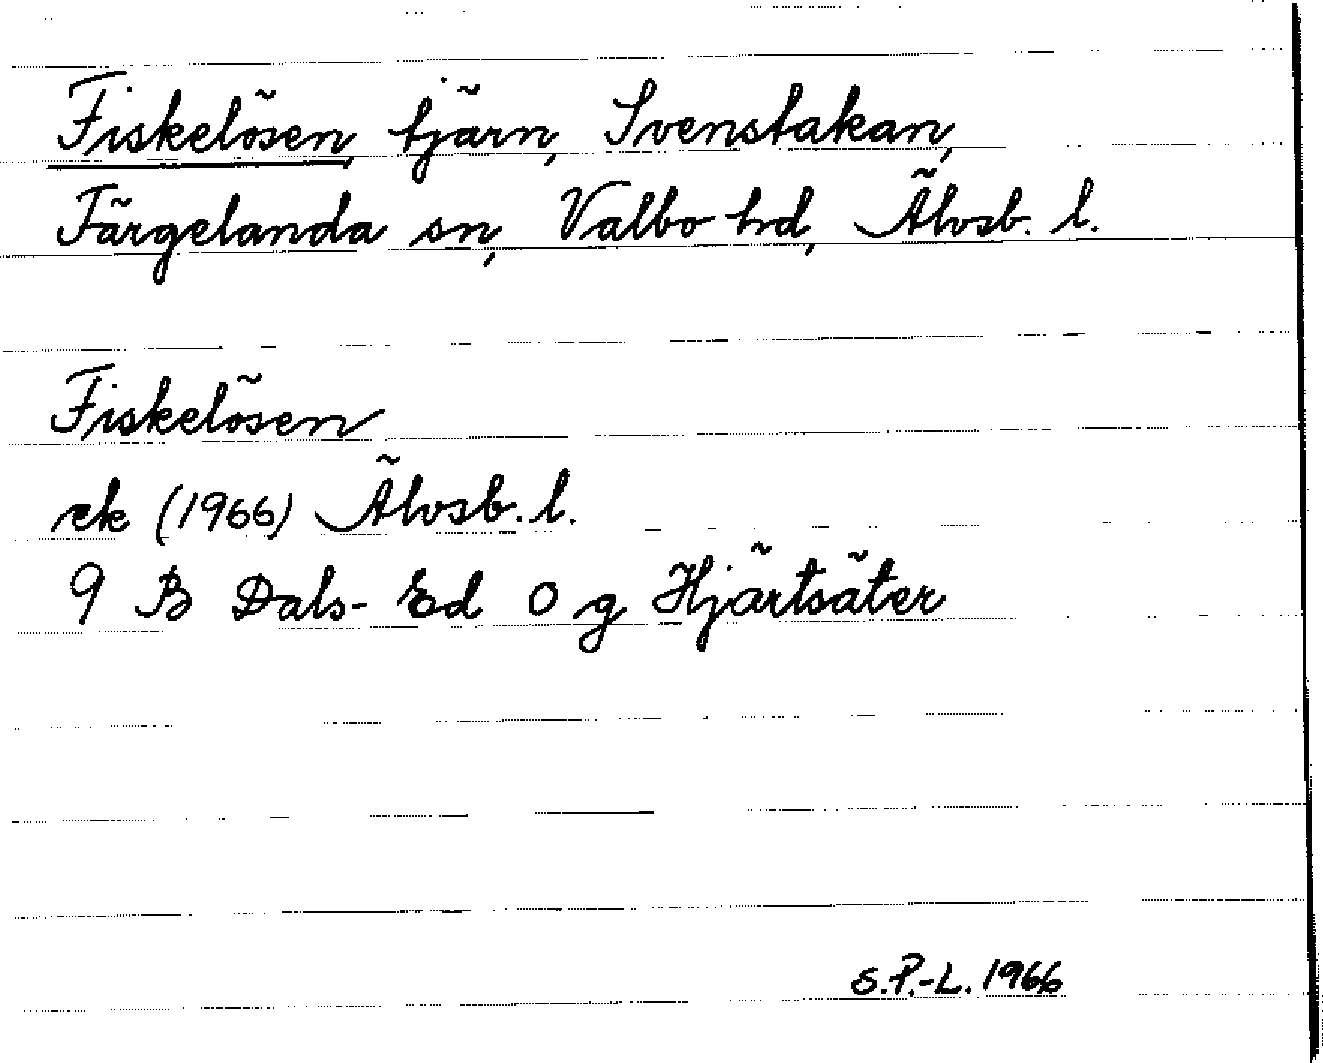 Fiskelösen, tjärn, Svenstakan,
Färgelanda sn, Valbo hd, Älvsb. l.
Fiskelösen
ek (1966) Älvsb. l.
9 B Dals-Ed 0 g Hjärtsäter
S.P.-L. 1966